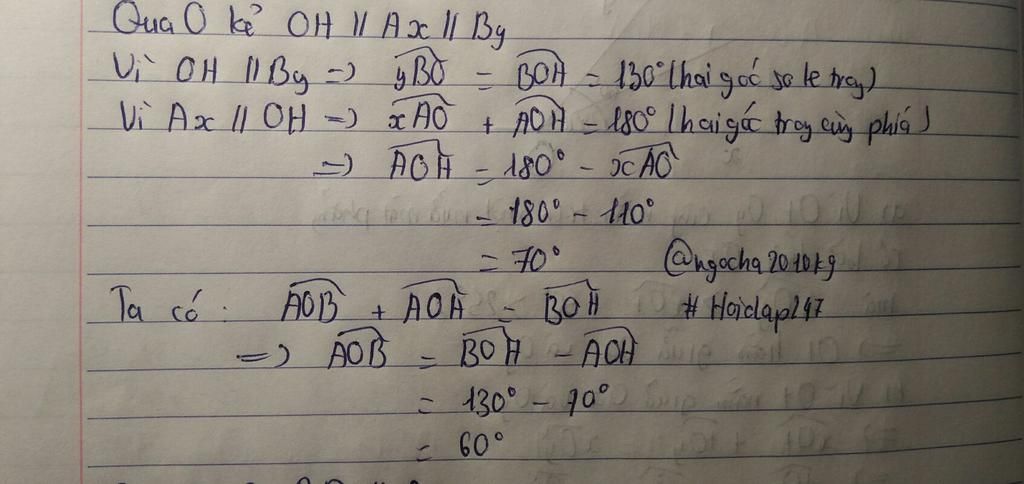 Qua O kẻ OH // Ax // By
Vì OH // By => yBO = BOH = 130° (hai góc so le trong)
Vì Ax // OH => xAO + AOH = 180° (hai góc trong cùng phía)
=> AOH = 180° - xAO
= 180° - 110°
= 70° @ngocha2010kg
Ta có: AOB + AOH = BOH # Hoidap247
=> AOB = BOH - AOH
= 130° - 70°
= 60°